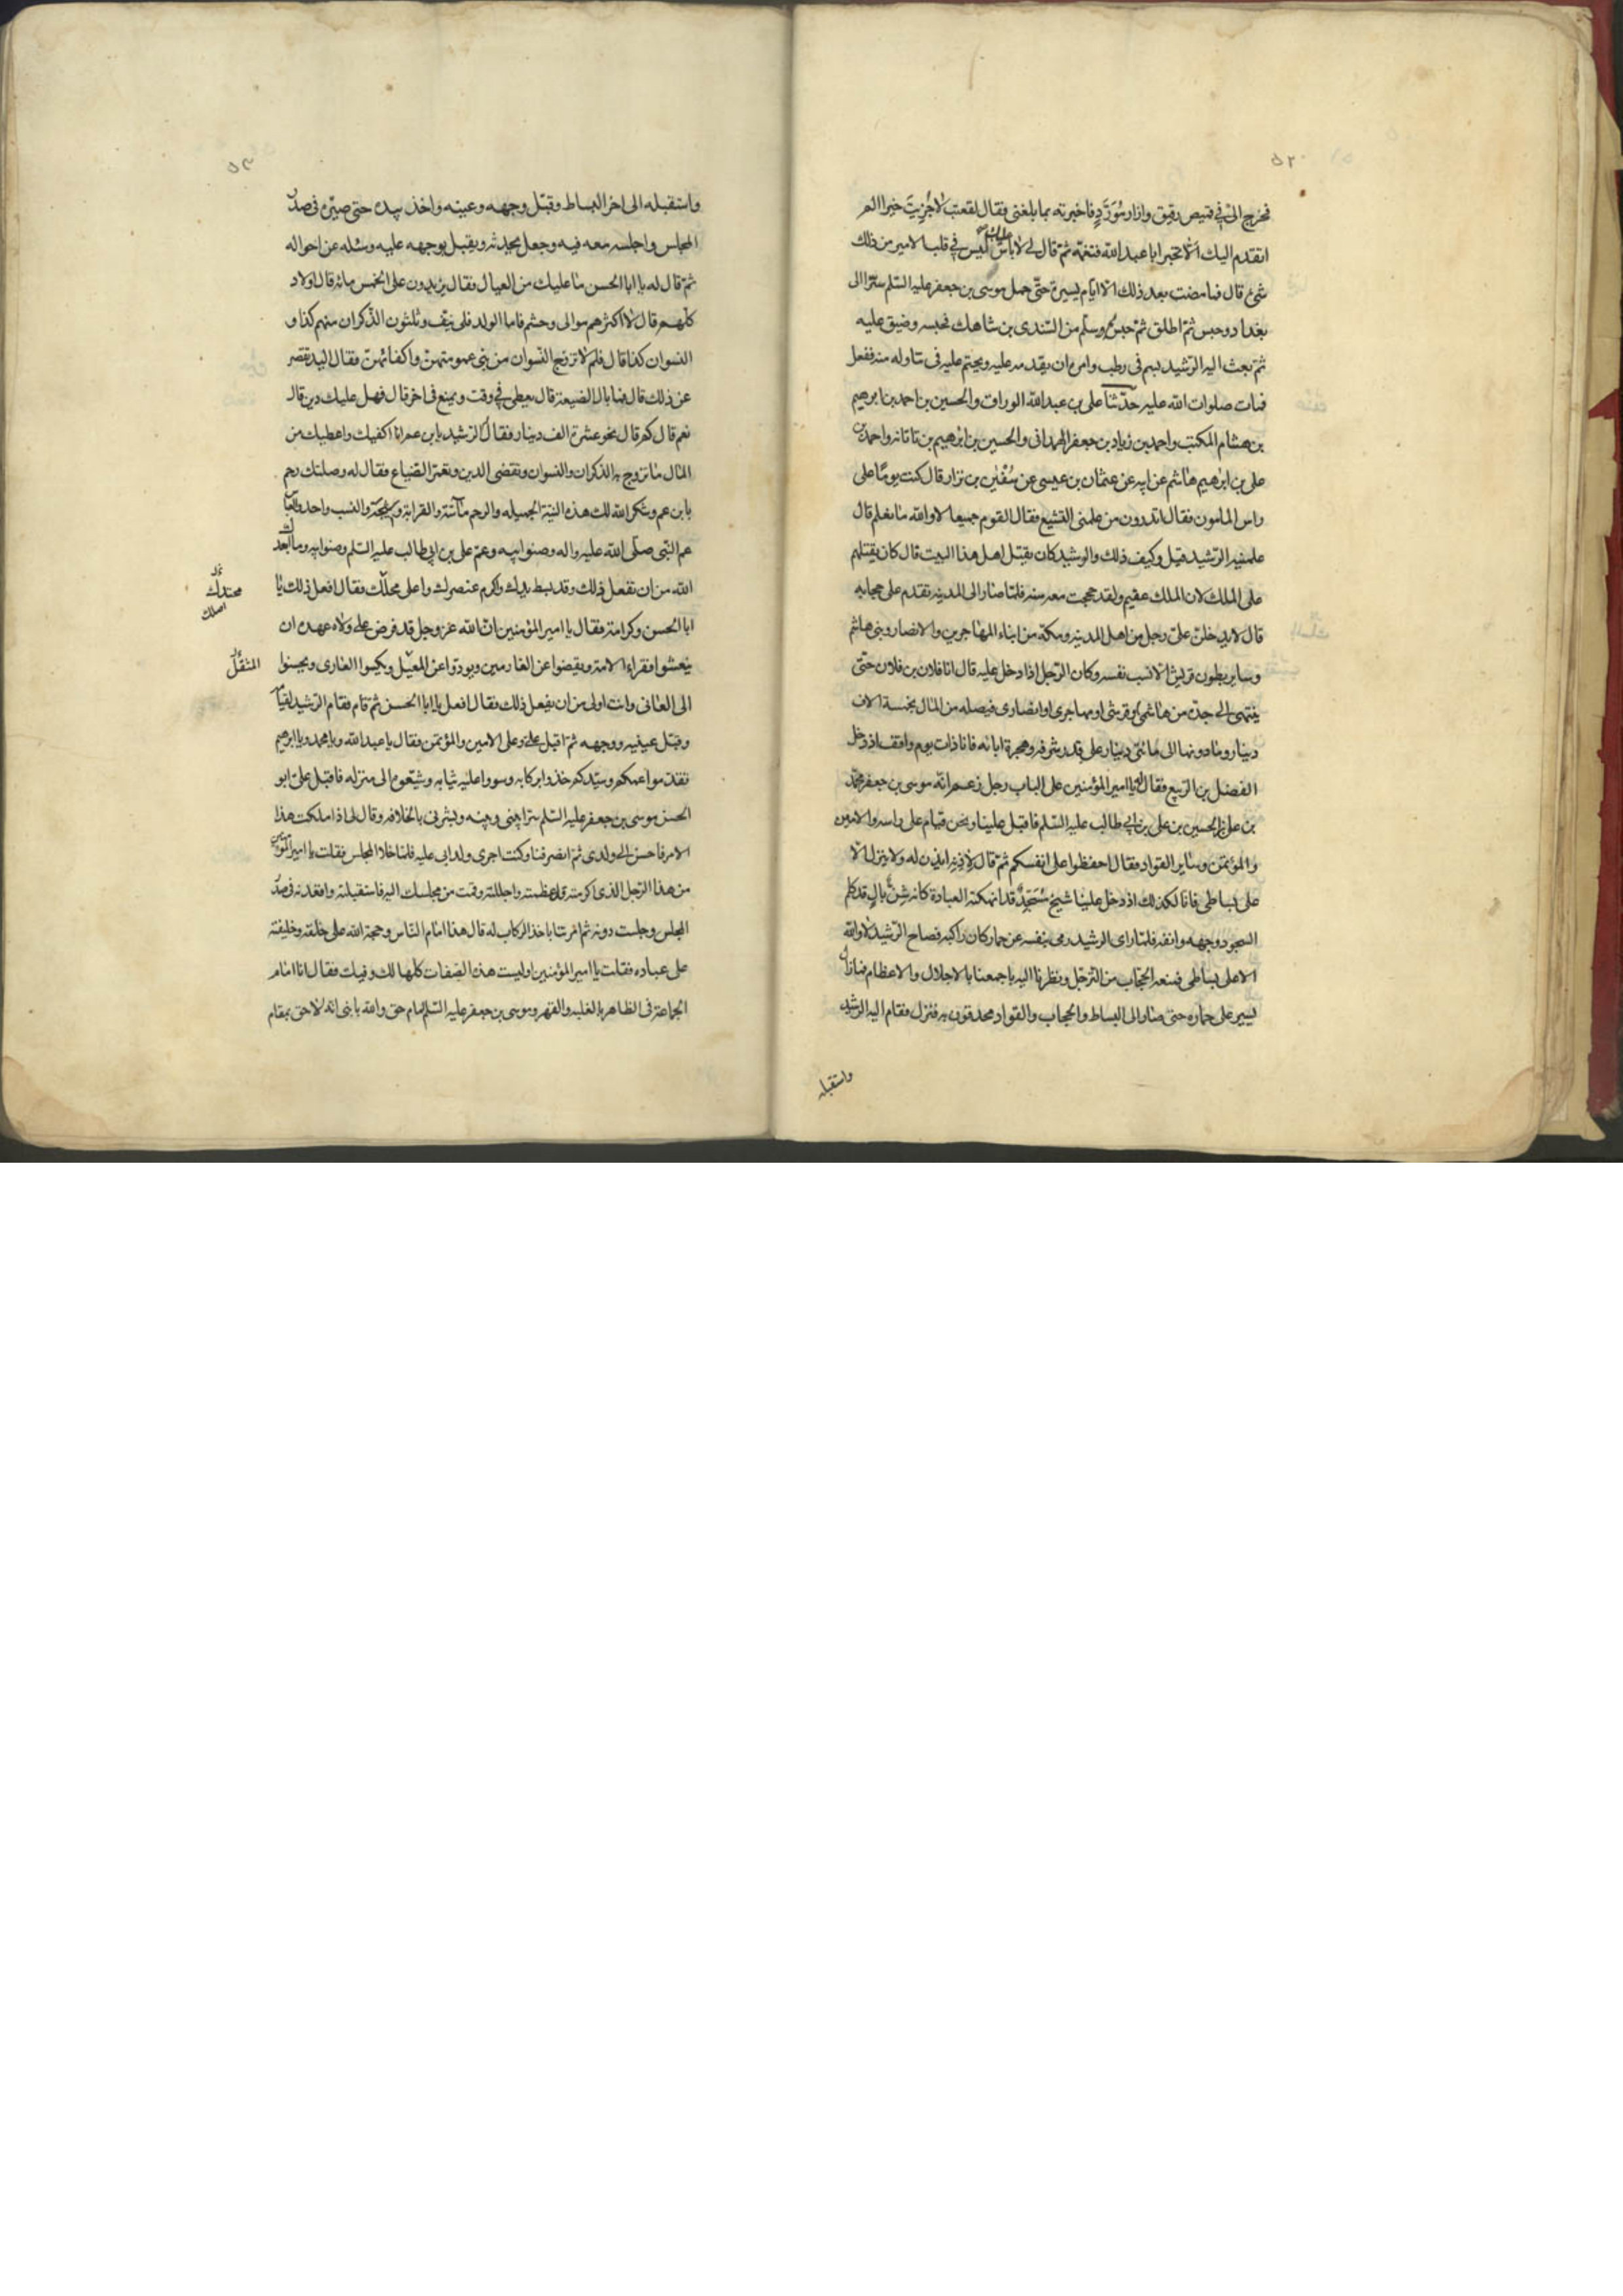 ٥٢
فخرج الىّ في قميص رقيق وازار مُوَرَّدٍ فاخبرته بما بلغنى فقال لقعنب لا جُزِيتَ خيرا الم
اتقدم اليك ألّا تخبر ابا عبد الله فتغمّه ثم قال لى لا باس عليك ليس في قلب الامير من ذلك
شئ قال فما مضت بعد ذلك الا ايام يسيرة حتى حمل موسى بن جعفر عليه السّلم سرّا الى
بغداد وحبس ثم اطلق ثم حبس وسلّم من السّندى بن شاهك فحبسه وضيق عليه
ثم بعث اليه الرّشيد بسم في رطب وامره ان يقدمه عليه ويحتم عليه فى تناوله منه ففعل
فمات صلوات الله عليه حدّثنا على بن عبد الله الوراق والحسين بن احمد بن ابرهيم
بن هشام المكتب واحمد بن زياد بن جعفر الهمدانى والحسين بن ابرهيم بن تاتانه واحمد بن
على بن ابرهيم هاشم عن ابيه عن عثمان بن عيسى عن سُفيٰن بن نزار قال كنت يومًا على
راس المامون فقال اتدرون من علمنى التشيع فقال القوم جميعا لا والله ما نعلم قال
علمنيه الرّشيد قيل وكيف ذلك والرشيد كان يقتل اهل هذا البيت قال كان يقتلهم
على الملك لان الملك عقيم ولقد حججت معه سنه فلما صار الى المدينه تقدم على حجابه
قال لا يدخلن علىّ رجل من اهل المدينه ومكة من ابناء المهاجرين والانصار وبنى هاشم
وساير بطون قريش الا نسب نفسه وكان الرّجل اذا دخل عليه قال انا فلان بن فلان حتّى
ينتهى الى جدّه من هاشمى او قرشى او مهاجرى او انصارى فيصله من المال بخمسة الاف
دينار وما دونها الى مائتى دينار على قدر شرفه وهجرة ابائه فانا ذات يوم واقف اذ دخل
الفضل بن الرّبيع فقال يا امير المؤمنين على الباب رجل زعم انّه موسى بن جعفر محمّد
بن على بن الحسين بن على بن ابى طالب عليه السّلم فاقبل علينا ونحن قيام على راسه والامين
والمؤتمن وساير القواد فقال احفظوا على انفسكم ثم قال لاٰذنه ايذن له ولا ينزل الّا
على بساطى فانا لكذلك اذ دخل علينا شيخ مُسَخَّدٌ قد انهكته العبادة كانه شنّ بالٍ قد كلم
السجود وجهه وانفه فلمّا راى الرشيد رمى بنفسه عن حمار كان راكبه فصاح الرّشيد لا والله
الا على بساطى فمنعه الحجّاب من الترّجل ونظرنا اليه باجمعنا بالاجلال والاعظام فمازال
يسير على حماره حتى صار الى البساط والحجاب والقواد محدقون به فنزل فقام اليه الرشيد
واستقبله
٥٣
واستقبله الى اخر البساط وقبّل وجهه وعينيه واخذ بيده حتى صيّره فى صدر
المجلس واجلسه معه فيه وجعل يحدثه ويقبل بوجهه عليه ويسئله عن احواله
ثمّ قال له يا ابا الحسن ما عليك من العيال فقال يزيدون على الخمس مائه قال اولاد
كلّهم قال لا اكثرهم موالى وحشم فاما الولد فلى نيّف وثلثون الذّكران منهم كذا و
النسوان كذا قال فلم لا تزوج النّسوان من بنى عمومتهنّ واكفائهنّ فقال اليد تقصر
عن ذلك قال فما بال الضيعة قال يعطى في وقت ويمنع فى اخر قال فهل عليك دين قال
نعم قال كم قال نحو عشرة الف دينار فقال الرّشيد يابن عم انا اكفيك واعطيك من
المال ما تزوج به الذكران والنسوان وتقضى الدين وتعمّر الضياع فقال له وصلتك رحم
يابن عم وشكر الله لك هذه النيّة الجميله والرحم ماسّة والقرابة وشيجة والنسب واحد والعبّاس
عم النبى صلى الله عليه واله وصنو ابيه وعم على بن ابى طالب عليه السّلم وصنو ابيه وما ابعدك
الله من ان تفعل ذلك وقد بسط يدك واكرم عنصرك واعلى محلّك فقال افعل ذلك يا
محتدك
اصلك
ابا الحسن وكرامة فقال يا امير المؤمنين انّ الله عزّ وجل قد فرض على ولاة عهده ان
ينعشوا فقراء الامة ويقضوا عن الغارمين ويودّوا عن المعيّل ويكسوا العارى ويحسنوا
المثقل
الى العانى وانت اولى من ان يفعل ذلك فقال افعل يا ابا الحسن ثم قام فقام الرّشيد لقيامه
وقبّل عينيه ووجهه ثم اقبل علىّ وعلى الامين والمؤتمن فقال يا عبد الله ويا محمد ويا ابرهيم
تقدموا عمكم وسيّدكم خذوا بركابه وسووا عليه ثيابه وشيّعوه الى منزله فاقبل علىّ ابو
الحسن موسى بن جعفر عليه السّلم سرّا بينى وبينه وبشرنى بالخلافه وقال لى اذا ملكت هذا
الامر فاحسن الى ولدى ثم انصرفنا وكنت اجرى ولد ابى عليه فلما خلا المجلس فقلت يا امير المؤمنين
من هذا الرّجل الذى اكرمته قد عظمته واجللته وقمت من مجلسك اليه فاستقبلته واقعدته فى صدر
المجلس وجلست دونه ثم امرتنا باخذ الركاب له قال هذا امام النّاس وحجة الله على خلقه وخليفته
على عباده فقلت يا امير المؤمنين اوليست هذه الصّفات كلها لك وفيك فقال انا امام
الجماعة فى الظاهر بالغلبه والقهر وموسى بن جعفر عليه السّلم امام حق والله يا بنى انه لاحق بمقام